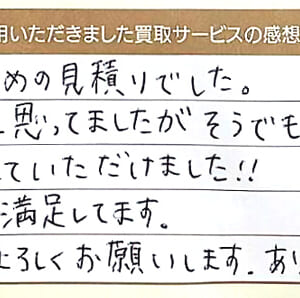 用いただきました買取サービスの感想
めの見積りでした。
思ってましたがそうでも
ていただけました!!
満足してます。
ろしくお願いします。あり